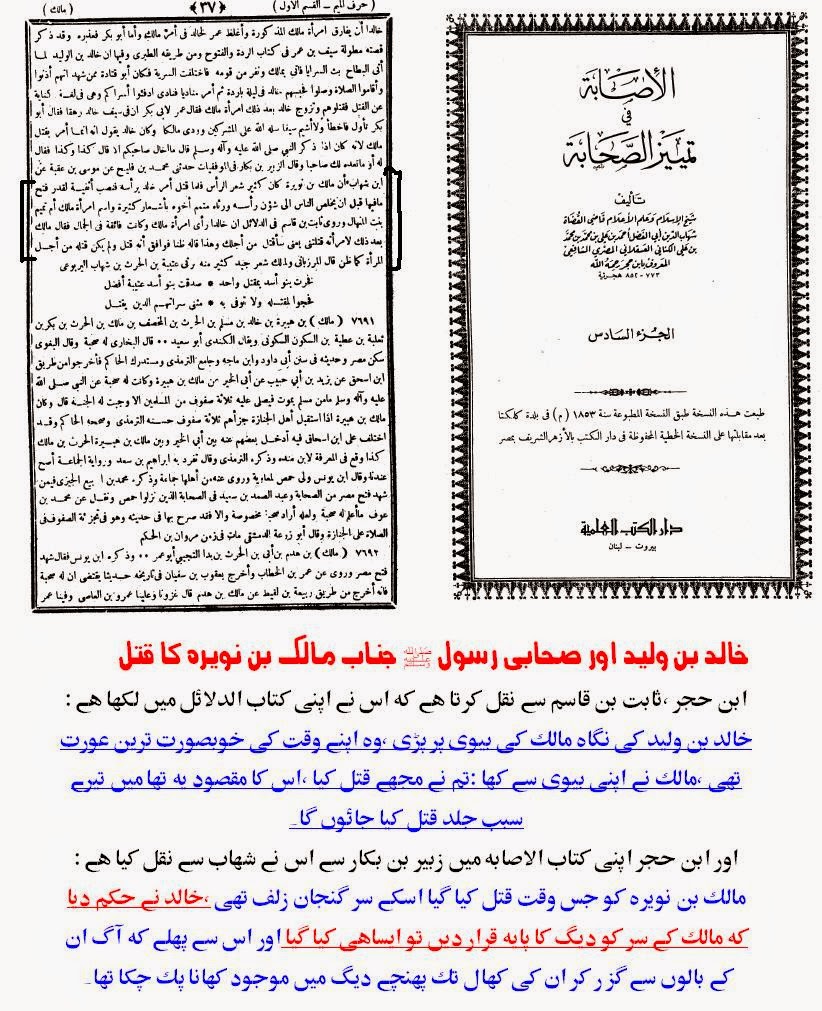 ( حرف الميم – القسم الاول )
﴿ ٣٧ ﴾
( مالك )
خالدا أن يفارق امرأة مالك المذكورة وأغلظ عمر لخالد فى أمر مالك وأما أبو بكر فعذره وقد ذكر
قصته مطولة سيف بن عمر فى كتاب الردة والفتوح ومن طريقه الطبرى وفيها ان خالد بن الوليد لما
أتى البطاح بث السرايا فأتى بمالك ونفر من قومه فاختلفت السرية فكان أبو قتادة ممن شهد انهم أذنوا
وأقاموا الصلاة وصلوا فحبسهم خالد فى ليلة باردة ثم أمر مناديا فنادى ادفئوا أسراكم وهى فى لغة كناية
عن القتل فقتلوهم وتزوج خالد بعد ذلك امرأة مالك فقال عمر لابى بكر ان فى سيف خالد رهقا فقال أبو
بكر تأول فأخطأ ولا أشيم سيفا سله الله على المشركين وودى مالكا وكان خالد يقول انه انما أمر بقتل
مالك لانه كان اذا ذكر النبي صلى الله عليه وآله وسلم قال ما اخال صاحبكم الا قال كذا وكذا فقال
له أو ما تعده لك صاحبا وقال الزبير بن بكار فى الموفقيات حدثنى محمد بن فليح عن موسى بن عقبة عن
ابن شهاب أن مالك بن نويرة كان كثير شعر الرأس فلما قتل أمر خالد برأسه فنصب أثفية لقدر فنضج
مافيها قبل ان يخلص النار الى شؤن رأسه ورثاه متمم أخوه بأشعار كثيرة واسم امرأة مالك أم تميم
بنت المنهال وروى ثابت بن قاسم فى الدلائل ان خالدا رأى امرأة مالك وكانت فائقة فى الجمال فقال مالك
بعد ذلك لامرأته قتلتنى يعنى سأقتل من أجلك وهذا قاله ظنا فوافق أنه قتل ولم يكن قتله من أجل
المرأة كما ظن قال المرزبانى ولمالك شعر جيد كثير منه يرثى عتيبة بن الحرث بن شهاب اليربوعى
فخرت بنو أسد بمقتل واحد * صدقت بنو أسد عتيبة أفضل
فخجوا بمقتله ولا توفى به * مثنى سراتهم الذين يقتل
٧٦٩١ ( مالك ) بن هبيرة بن خالد بن مسلم بن الحرث بن المخصف بن مالك بن الحرث بن بكر بن
ثعلبة بن عقبة بن السكون السكونى ويقال الكندى أبو سعيد ٠٠ قال البخارى له صحبة وقال البغوى
سكن مصر وحديثه فى سنن أبى داود وابن ماجه وجامع الترمذى ومستدرك الحاكم فأخرجوا من طريق
ابن اسحق عن يزيد بن أبى حبيب عن أبى الخير عن مالك بن هبيرة وكانت له صحبة عن النبي صلى الله
عليه وآله وسلم مامن مسلم يموت فيصلى عليه ثلاثة صفوف من المسلمين الا وجبت له الجنة قال وكان
مالك بن هبيرة اذا استقبل أهل الجنازة جزأهم ثلاثة صفوف حسنه الترمذى وصححه الحاكم وقد
اختلف على ابن اسحاق فيه أدخل بعضهم عنه بين أبى الخير وبين مالك بن هبيرة الحرث بن مالك
كذا وقع فى المعرفة لابن منده وذكره الترمذى وقال تفرد به ابراهيم بن سعد ورواية الجماعة أصح
عندنا وقال ابن يونس ولى حمص لمعاوية وروى عنه من أهلها جماعة وذكره محمد بن الربيع الجيزى فيمن
شهد فتح مصر من الصحابة وعبد الصمد بن سعيد فى الصحابة الذين نزلوا حمص ونقل عن محمد بن
عوف ما أعلم له صحبة ولعله أراد صحبة مخصوصة والا فقد صرح بها فى حديثه وهو فى تجزئة الصفوف فى
الصلاة على الجنازة وقال أبو زرعة الدمشقى مات فى زمن مروان بن الحكم
٧٦٩٢ ( مالك ) بن هدم بن أبى بن الحرث بن بدا التجيبى أبو عمر ٠٠ وذكره ابن يونس فقال شهد
فتح مصر وروى عن عمر بن الخطاب وأخرج يعقوب بن سفيان فى تاريخه حديثا يقتضى ان له صحبة
فانه أخرج من طريق ربيعة بن لقيط عن مالك بن هدم قال غزونا وعلينا عمرو بن العاصى وفينا عمر
الإصابة
في
تمييز الصحابة
تأليف
شيخ الإسلام وعلم الأعلام قاضي القضاة
شهاب الدين أبي الفضل أحمد بن علي بن محمد بن محمد
بن علي الكناني العسقلاني المصري الشافعي
المعروف بابن حجر رحمه الله
٧٧٣ – ٨٥٢ هجرية
الجزء السادس
طبعت هذه النسخة طبق النسخة المطبوعة سنة ١٨٥٣ ( م ) فى بلدة كلكتا
بعد مقابلتها على النسخة الخطية المحفوظة فى دار الكتب بالأزهر الشريف بمصر
دار الكتب العلمية
بيروت – لبنان
خالد بن ولید اور صحابی رسول ﷺ جناب مالک بن نویرہ کا قتل
ابن حجر ،ثابت بن قاسم سے نقل کرتا ہے کہ اس نے اپنی کتاب الدلائل میں لکھا ہے :
خالد بن ولید کی نگاہ مالک کی بیوی پر پڑی ،وہ اپنے وقت کی خوبصورت ترین عورت
تھی ،مالک نے اپنی بیوی سے کہا :تم نے مجھے قتل کیا ،اس کا مقصود یہ تھا میں تیرے
سبب جلد قتل کیا جائوں گا۔
اور ابن حجر اپنی کتاب الاصابہ میں زبیر بن بکار سے اس نے شهاب سے نقل کیا ہے :
مالک بن نویرہ کو جس وقت قتل کیا گیا اسکے سر گنجان زلف تھی ،خالد نے حکم دیا
کہ مالک کے سر کو دیگ کا پایہ قرار دیں تو ایساهی کیا گیا اور اس سے پهلے کہ آگ ان
کے بالوں سے گزر کر ان کی کھال تک پهنچے دیگ میں موجود کھانا پک چکا تھا۔